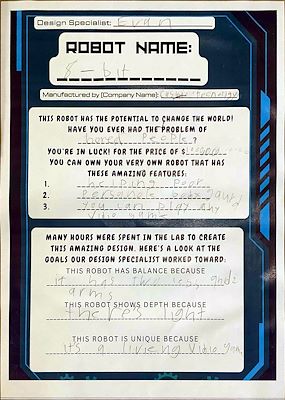 Design Specialist: Evan
ROBOT NAME:
8-bit
Manufactured by (Company Name):
THIS ROBOT HAS THE POTENTIAL TO CHANGE THE WORLD!
HAVE YOU EVER HAD THE PROBLEM OF
bored people?
YOU'RE IN LUCK! FOR THE PRICE OF $
YOU CAN OWN YOUR VERY OWN ROBOT THAT HAS
THESE AMAZING FEATURES:
1. helping
2.
3. you can play any
vidio game
MANY HOURS WERE SPENT IN THE LAB TO CREATE
THIS AMAZING DESIGN. HERE'S A LOOK AT THE
GOALS OUR DESIGN SPECIALIST WORKED TOWARD:
THIS ROBOT HAS BALANCE BECAUSE
it has two legs and
arms
THIS ROBOT SHOWS DEPTH BECAUSE
theres light
THIS ROBOT IS UNIQUE BECAUSE
it's a liveing vidio game